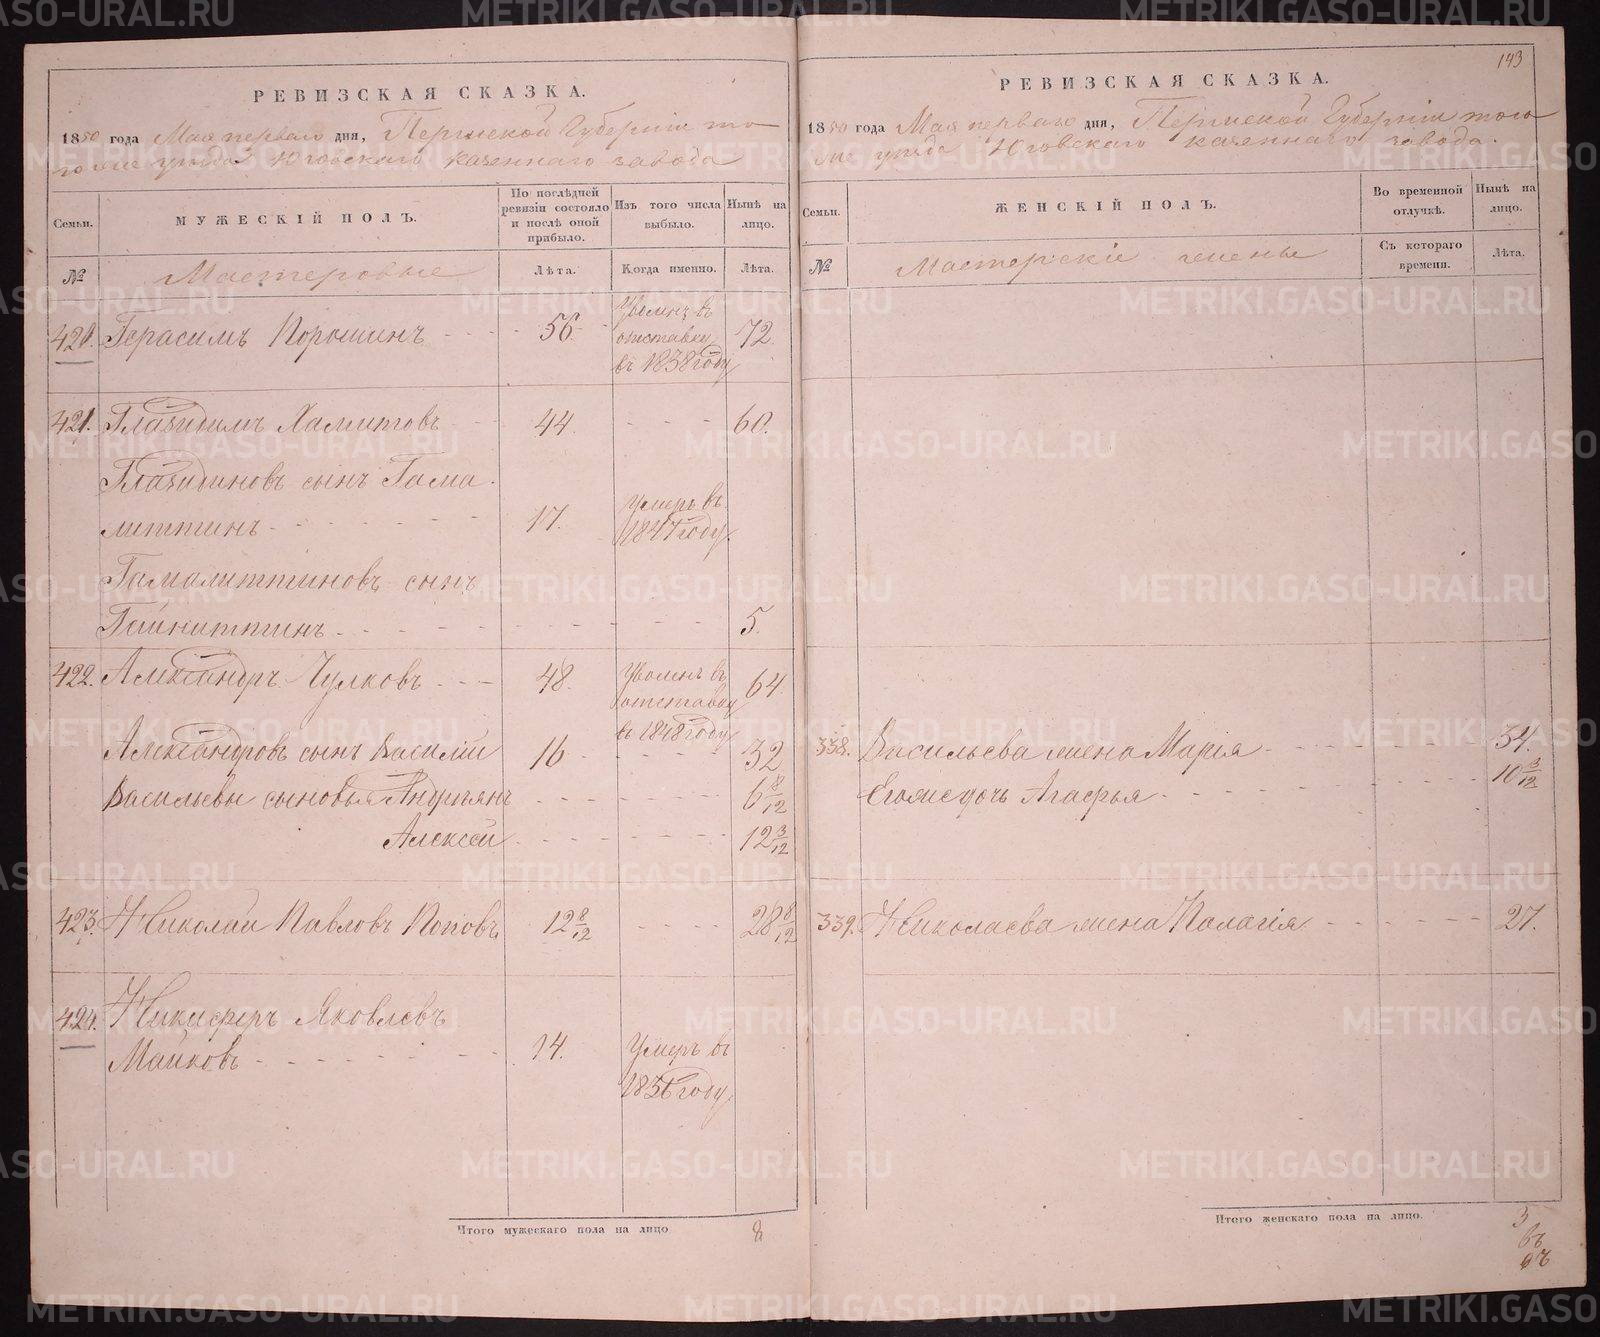 РЕВИЗСКАЯ СКАЗКА.
1850 года Мая перваго дня, Пермской Губерніи то
гоже уѣзда Юговскаго казеннаго завода
Семьи.
МУЖЕСКІЙ ПОЛЪ.
По послѣдней ревизіи состояло и послѣ оной прибыло.
Изъ того числа выбыло.
Нынѣ на лицо.
№
Мастеровые
Лѣта.
Когда именно.
Лѣта.
420. Герасимъ Порошинъ 56. Уволенъ въ отставку въ 1838 году 72.
421. Хамитовъ 44. 60.
сынъ Гама
литтинъ 17. Умеръ въ 1847 году
Гамалиттиновъ сынъ
Гайниттинъ 5.
422. Александръ Чулковъ 48. Уволенъ въ отставку въ 1848 году 64
Александровъ сынъ Василій 16 32
Васильевы сыновья Андріянъ 6 8/12
Алексей 12 3/12
423. Николай Павловъ Поповъ 12 8/12 28 8/12
424. Никиферъ Яковлевъ
Майковъ 14. Умеръ въ году
Итого мужескаго пола на лицо 8
143
РЕВИЗСКАЯ СКАЗКА.
1850 года Мая перваго дня, Пермской Губерніи того
же уѣзда Юговскаго казеннаго завода.
Семьи.
ЖЕНСКІЙ ПОЛЪ.
Во временной отлучкѣ.
Нынѣ на лицо.
№
Мастерскіе женеы
Съ котораго времени.
Лѣта.
338. Васильева жена Марія 34.
Егожедочь Агафья 10 3/12
339. Николаева жена Палагія 27.
Итого женскаго пола на лицо. 3
METRIKI.GASO-URAL.RU